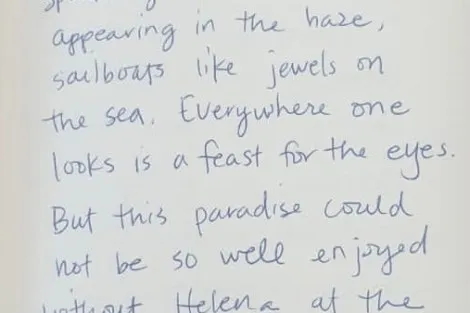 appearing in the haze,
sailboats like jewels on
the sea. Everywhere one
looks is a feast for the eyes.
But this paradise could
not be so well enjoyed
without Helena at the